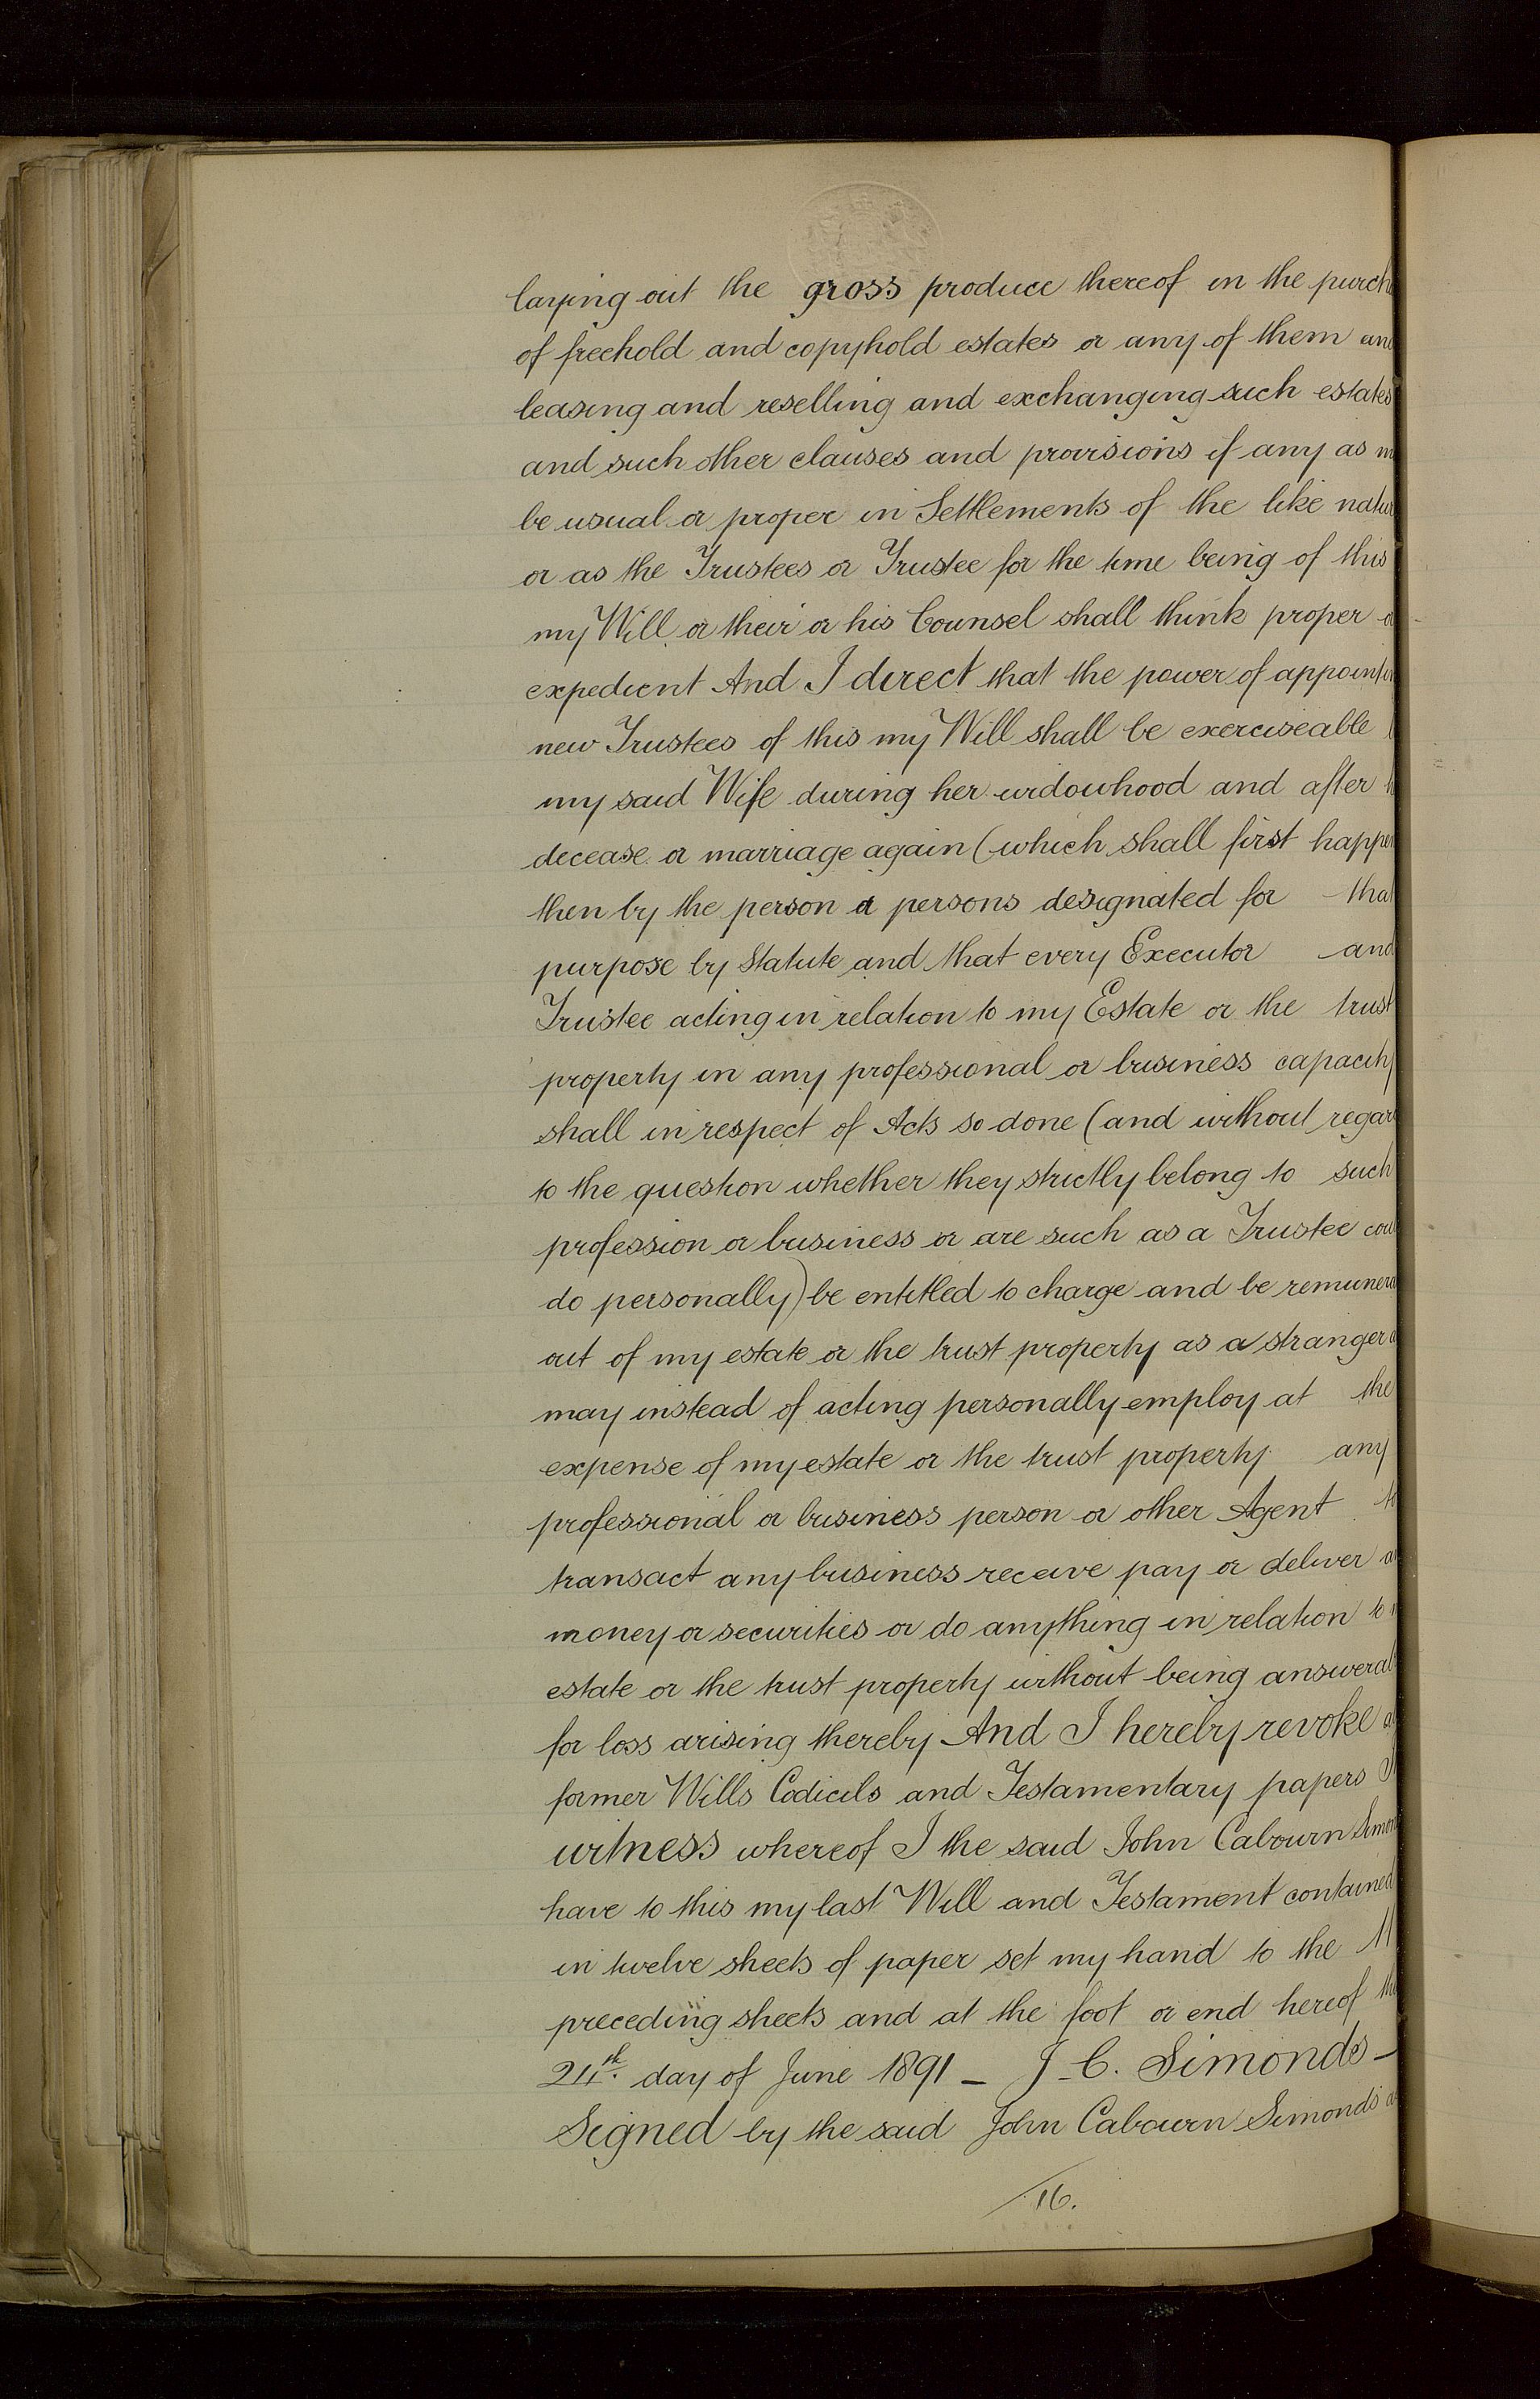 laying out the gross produce thereof in the purch
of freehold and copyhold estates or any of them and
leasing and reselling and exchanging such estates
and such other clauses and provisions if any as m
be usual or proper in Settlements of the like natur
or as the Trustees or Trustee for the time being of this
my Will or their or his Counsel shall think proper o
expedient And I direct that the power of appointin
new Trustees of this my Will shall be exerciseable
my said Wife during her widowhood and after h
decease or marriage again (which shall first happen
then by the person or persons designated for that
purpose by Statute and that every Executor and
Trustee acting in relation to my Estate or the trust
property in any professional or business capacity
shall in respect of Acts so done (and without regar
to the question whether they strictly belong to such
profession or business or are such as a Trustee cou
do personally) be entitled to charge and be remunera
out of my estate or the trust property as a stranger a
may instead of acting personally employ at the
expense of my estate or the trust property any
professional or business person or other Agent to
transact any business receive pay or deliver a
money or securities or do anything in relation to m
estate or the trust property without being answerab
for loss arising thereby And I hereby revoke a
former Wills Codicils and Testamentary papers I
witness whereof I the said John Cabourn Simon
have to this my last Will and Testament contained
in twelve sheets of paper set my hand to the 11
preceding sheets and at the foot or end hereof th
24th. day of June 1891 – J. C. Simonds –
Signed by the said John Cabourn Simonds a
16.